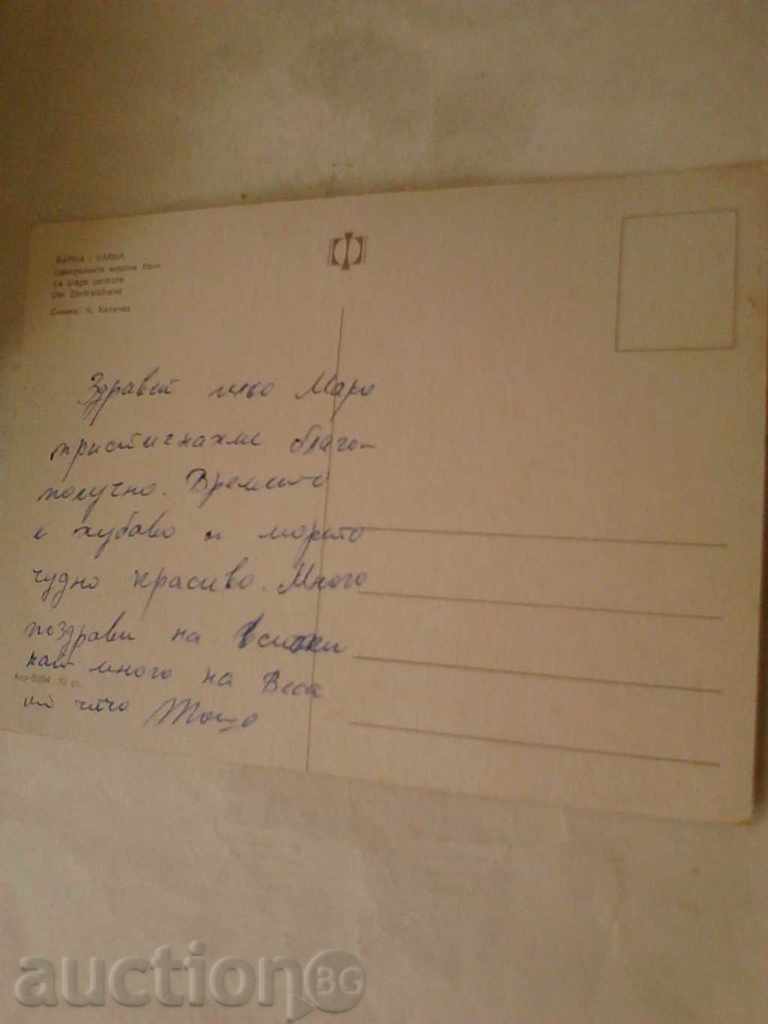 ВАРНА - VARNA
Централните морски бани
La plage centrale
Das Zentralstrand
Снимка:
Здравей Маро
пристигнахме благо-
получно. Времето
е хубаво и морето
чудно красиво. Много
поздрави на всички
най много на Веса
от чичо Тошо
10 ст.
auctionBG